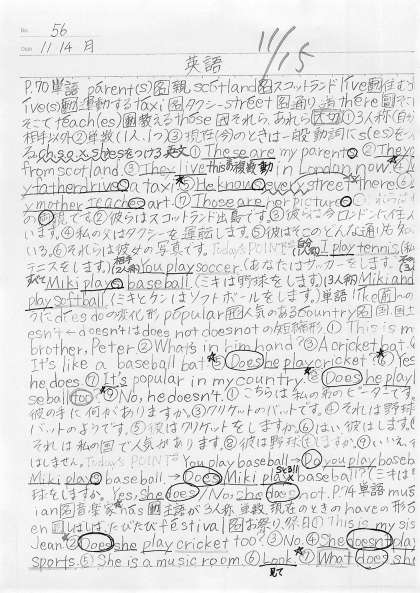 No. 56
Date 11 14 月
11/15
英語
P.70 単語 parent(s) 图親 scotland 图スコットランド live 動住む
ive(s) 動運転する taxi 图タクシー street 图通り there
そこで teach(es) 動教える those 图それら、あれら 大切 ①3人称(自分
相手以外②単数(1人、1つ)③現在(今)のときは一般動詞にs(es)を
をつける 英文 ① These are my parents. ② They
from scotland. ③ They live in London now. ④
y father drives a taxi. ⑤ He knows every street there. ⑥
y mother teaches art. ⑦ Those are her pictures.
親です②彼らはスコットランド出身です。③彼らは今ロンドンに住んで
います。④私の父はタクシーを運転します。⑤彼はそこのどんな通りも知
いる。⑥ それらは彼女の写真です。Today's POINT I play tennis. (私
テニスをします) You play soccer. (あなたはサッカーをします。
Miki plays baseball. (ミキは野球をします) (3人称) Miki and
play softball. (ミキとケンはソフトボールをします。) 単語 like
does doの変化形 popular 人気のある Country 图国
esn't ← doesn'tは does not does notの短縮形. ① This is m
brother, Peter. ② What's in him hand? ③ A cricket bat.
It's like a baseball bat. ⑤ Does he play cricket? ⑥ Yes
he does. ⑦ It's popular in my country. ⑧ Does he play
seball too? ⑨ No, he doesn't. ① こちらは私の弟のピーターです。
彼の手に何がありますか。③クリケットのバットです。④それは野球
バットのようです。⑤彼はクリケットをしますか。⑥はい、彼はします。
それは私の国で人気があります。⑧彼は野球もしますか。⑨いいえ、
はしません。Today's POINT You play baseball. → Do you play baseb
Miki plays baseball. → Does Miki play baseball? (ミキは
球をしますか。Yes, she does / No, she does not. P.74 単語 mus
ian 图音楽家 has 動主語が3人称単数現在のときのhaveの形
en 副しばしば、たびたび festival 图お祭り、祭日 ① This is my sis
Jean. ② Does she play cricket too? ③ No. ④ She doesn't play
sports. ⑤ She is a music room. ⑥ Look. ⑦ What does she
見て